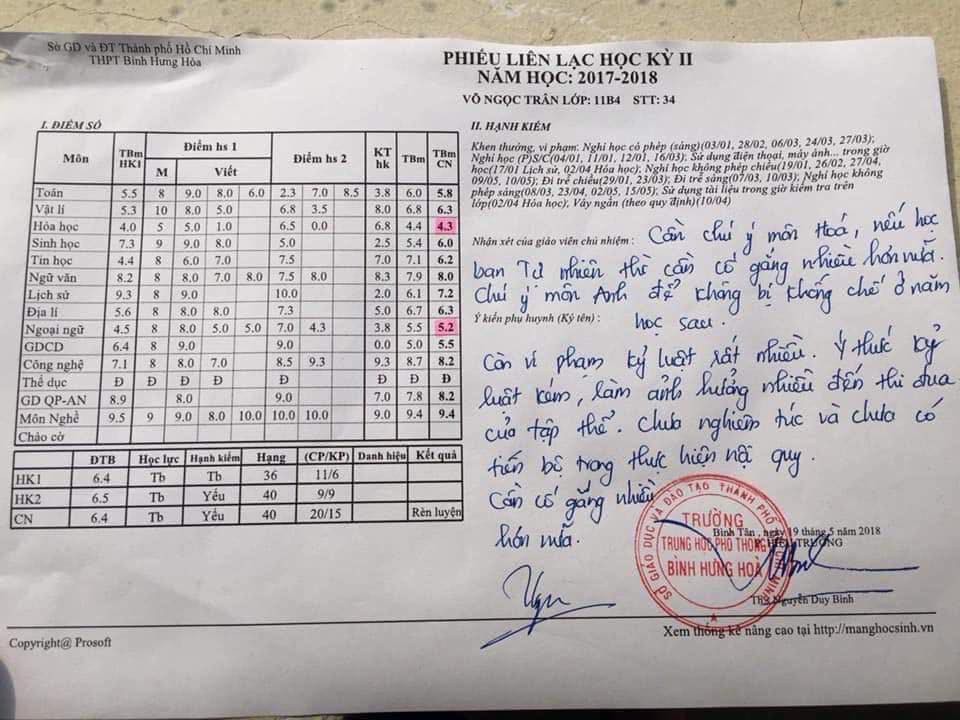 Sở GD và ĐT Thành phố Hồ Chí Minh
THPT Bình Hưng Hòa
PHIẾU LIÊN LẠC HỌC KỲ II
NĂM HỌC: 2017-2018
VÕ NGỌC TRÂN LỚP: 11B4 STT: 34
I. ĐIỂM SỐ
Môn TBm HK1 Điểm hs 1 Điểm hs 2 KT hk TBm TBm CN
M Viết
Toán 5.5 8 9.0 8.0 6.0 2.3 7.0 8.5 3.8 6.0 5.8
Vật lí 5.3 10 8.0 5.0 6.8 3.5 8.0 6.8 6.3
Hóa học 4.0 5 5.0 1.0 6.5 0.0 6.8 4.4 4.3
Sinh học 7.3 9 9.0 8.0 5.0 2.5 5.4 6.0
Tin học 4.4 8 6.0 7.0 7.5 7.0 7.1 6.2
Ngữ văn 8.2 8 8.0 7.0 8.0 7.5 8.0 8.3 7.9 8.0
Lịch sử 9.3 8 9.0 10.0 2.0 6.1 7.2
Địa lí 5.6 8 8.0 8.0 7.3 5.0 6.7 6.3
Ngoại ngữ 4.5 8 8.0 5.0 5.0 7.0 4.3 3.8 5.5 5.2
GDCD 6.4 8 9.0 9.0 0.0 5.0 5.5
Công nghệ 7.1 8 8.0 7.0 8.5 9.3 9.3 8.7 8.2
Thể dục Đ Đ Đ Đ Đ Đ Đ
GD QP-AN 8.9 8.0 9.0 7.0 7.8 8.2
Môn Nghề 9.5 9 9.0 8.0 10.0 10.0 10.0 9.0 9.4 9.4
Chào cờ
ĐTB Học lực Hạnh kiểm Hạng (CP/KP) Danh hiệu Kết quả
HK1 6.4 Tb Tb 36 11/6
HK2 6.5 Tb Yếu 40 9/9
CN 6.4 Tb Yếu 40 20/15 Rèn luyện
II. HẠNH KIỂM
Khen thưởng, vi phạm: Nghỉ học có phép (sáng)(03/01, 28/02, 06/03, 24/03, 27/03);
Nghỉ học (P)S/C(04/01, 11/01, 12/01, 16/03); Sử dụng điện thoại, máy ảnh... trong giờ
học(17/01 Lịch sử, 02/04 Hóa học); Nghỉ học không phép chiều(19/01, 26/02, 27/04,
09/05, 10/05); Đi trễ chiều(29/01, 23/03); Đi trễ sáng(07/03, 10/03); Nghỉ học không
phép sáng(08/03, 23/04, 02/05, 15/05); Sử dụng tài liệu trong giờ kiểm tra trên
lớp(02/04 Hóa học), Váy ngắn (theo quy định)(10/04)
Nhận xét của giáo viên chủ nhiệm : Cần chú ý môn Hoá, nếu học
ban Tự nhiên thì cần cố gắng nhiều hơn nữa.
Chú ý môn Anh để không bị khống chế ở năm
học sau.
Ý kiến phụ huynh (Ký tên) :
Còn vi phạm kỷ luật rất nhiều. Ý thức kỷ
luật kém, làm ảnh hưởng nhiều đến thi đua
của tập thể. Chưa nghiêm túc và chưa có
tiến bộ trong thực hiện nội quy.
Cần cố gắng nhiều
hơn nữa.
Bình Tân , ngày 19 tháng 5 năm 2018
HIỆU TRƯỞNG
SỞ GIÁO DỤC VÀ ĐÀO TẠO THÀNH PHỐ HỒ CHÍ MINH
TRƯỜNG
TRUNG HỌC PHỔ THÔNG
BÌNH HƯNG HOÀ
ThS Nguyễn Duy Bính
Copyright@ Prosoft
Xem thống kê nâng cao tại http://manghocsinh.vn